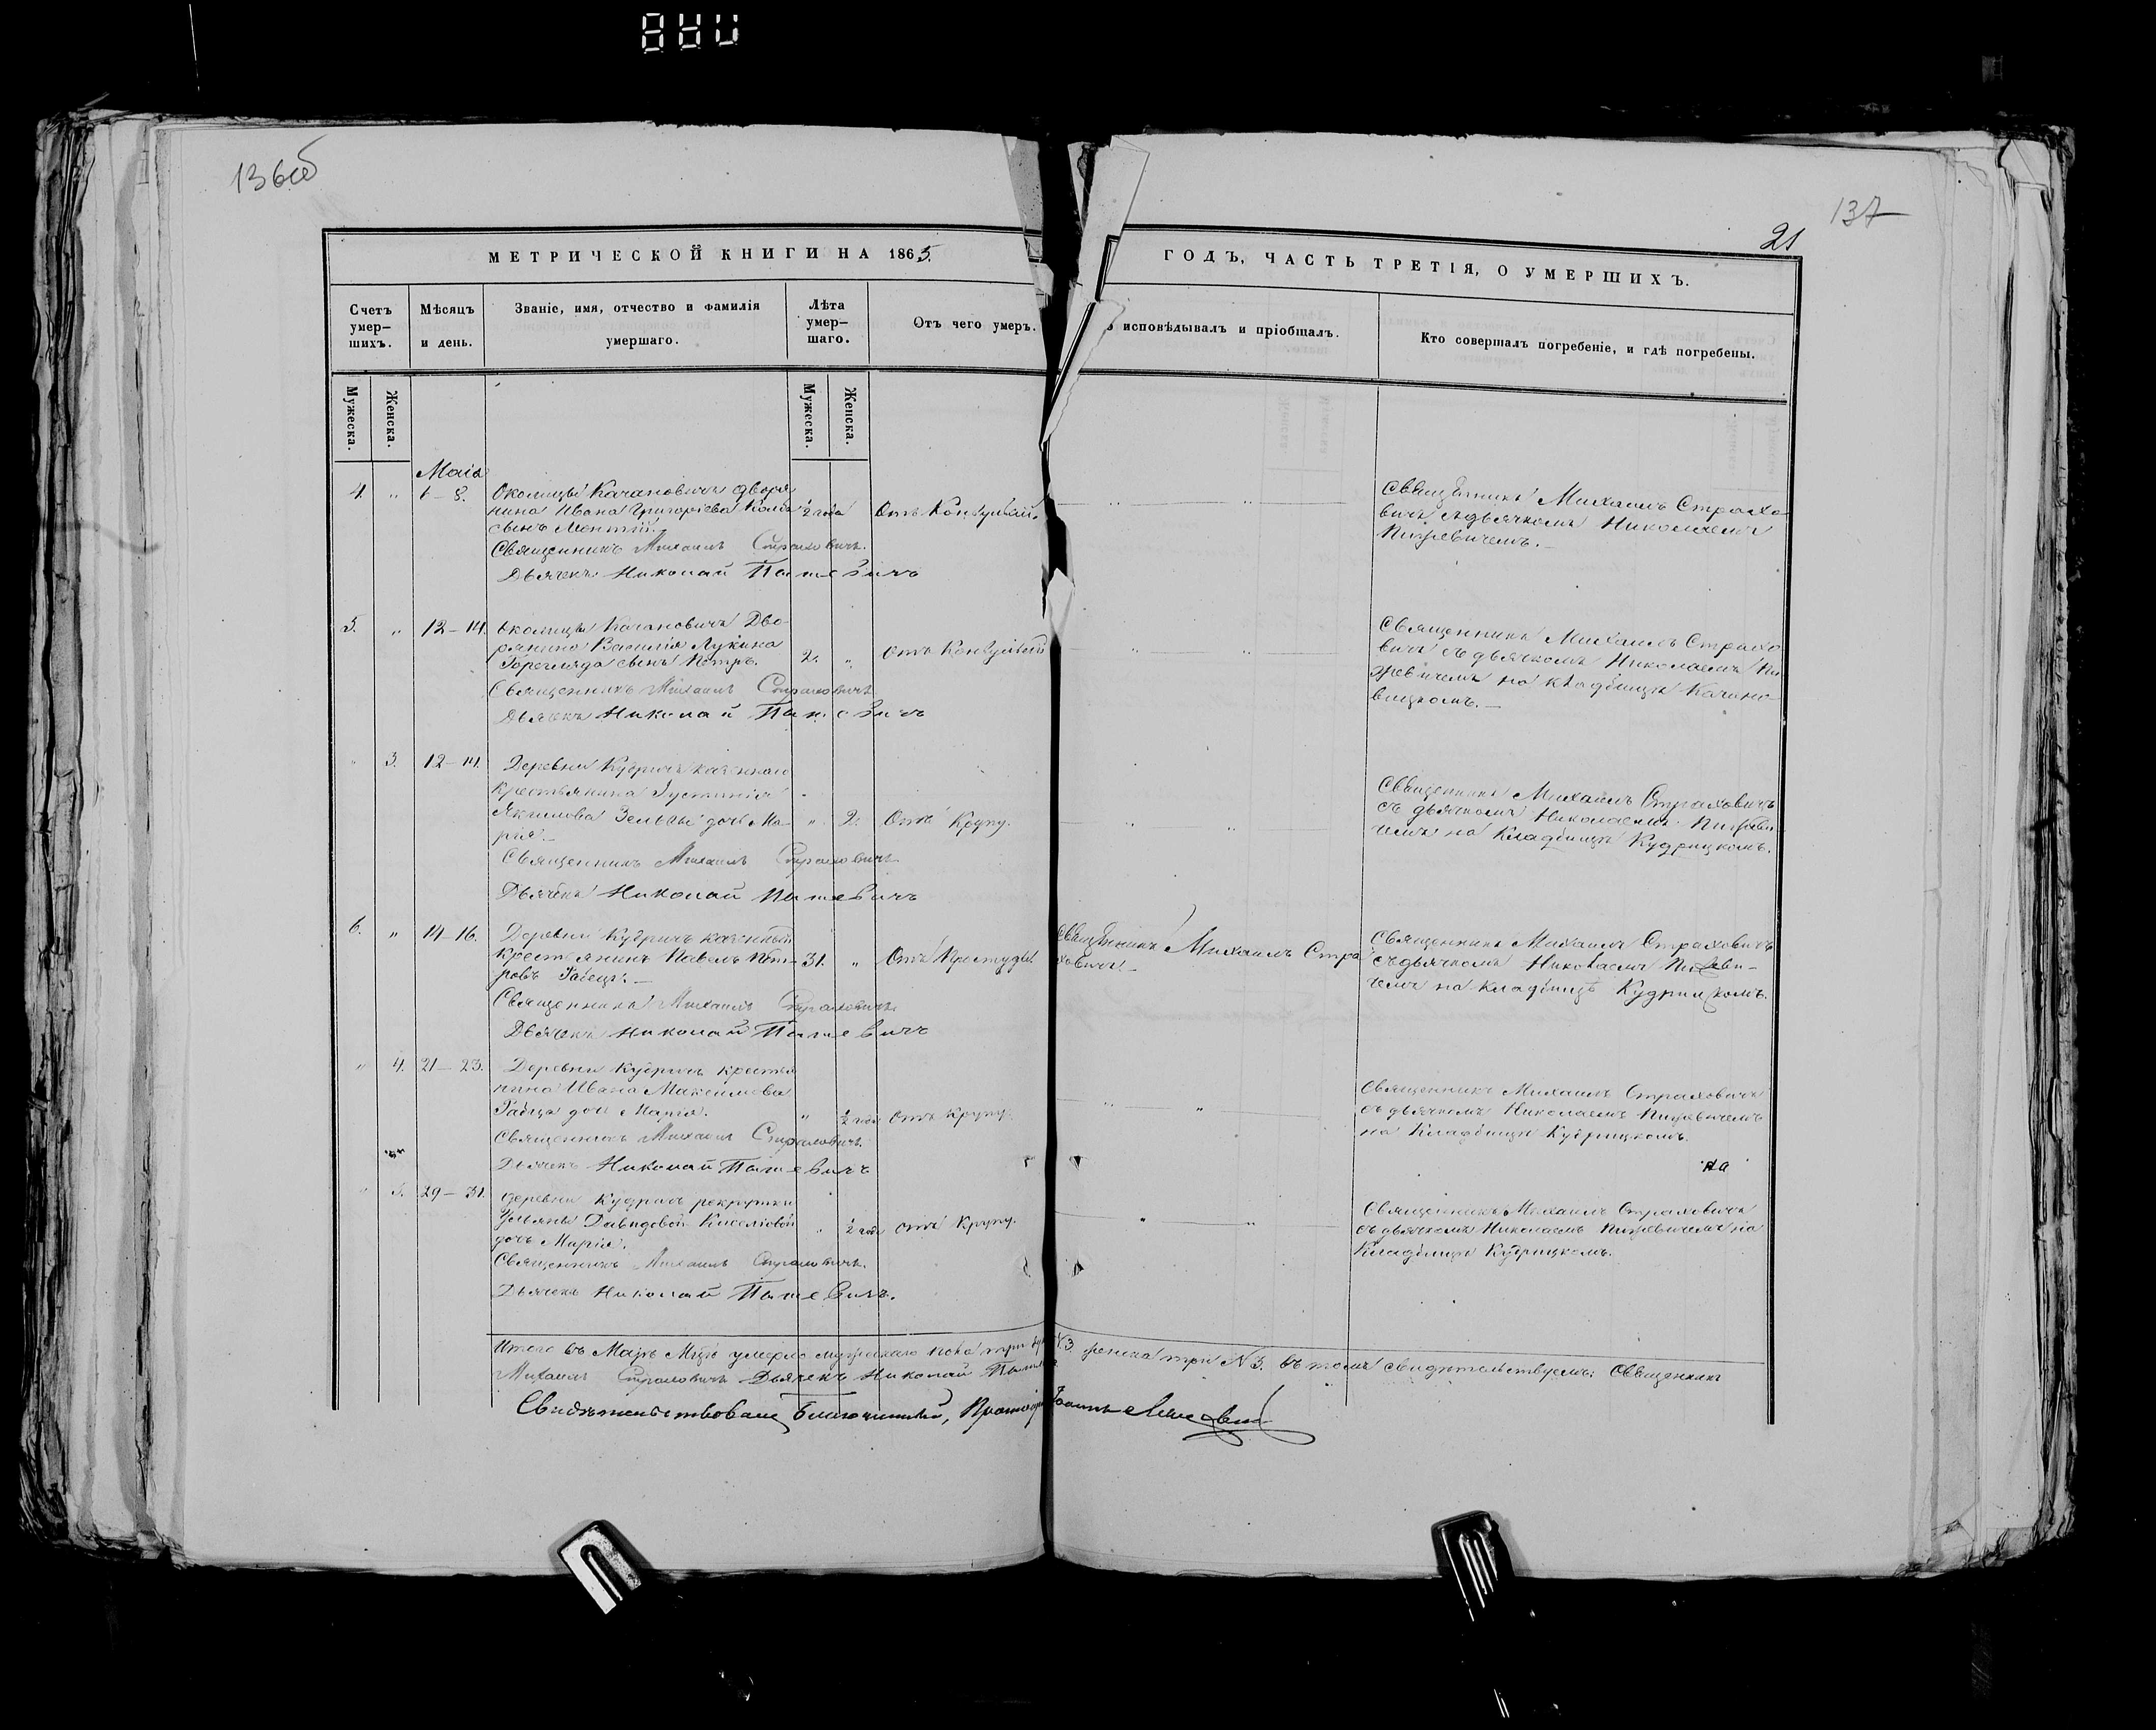 136об
137
21
МЕТРИЧЕСКОЙ КНИГИ НА 1865.
ГОДЪ, ЧАСТЬ ТРЕТІЯ, О УМЕРШИХЪ.
Счетъ умер-шихъ.
Мѣсяцъ и день.
Званіе, имя, отчество и фамилія умершаго.
Лѣта умер-шаго.
Отъ чего умеръ.
исповѣдывалъ и пріобщалъ.
Кто совершалъ погребеніе, и гдѣ погребены.
Мужеска.
Женска.
Мужеска.
Женска.
Маія
4. " 6-8. Околицы Качановичъ дворя-
нина Ивана Григоріева
сынъ
½ года
Отъ Конвульсій.
Священникъ Михаилъ Страховичъ.
Дьячекъ Николай
Священникъ Михаилъ Страхо-
вичъ съ дьячкомъ Николаемъ
5. " 12-14. Околицы Качановичъ Дво-
рянина Василія Лукина
Гореглада сынъ Петръ.
2. "
Отъ Конвульсій
Священникъ Михаилъ Страховичъ
Дьячекъ Николай
Священникъ Михаилъ Страхо-
вичъ съ дьячкомъ Николаемъ
на кладбищѣ Качано-
вицкомъ.
" 3. 12-14. Деревни Кудричъ казеннаго
крестьянина Іустинія
Якимова дочь Ма-
рія.
" 2.
Отъ Крупу.
Священникъ Михаилъ Страховичъ
Дьячекъ Николай
Священникъ Михаилъ Страховичъ
съ дьячкомъ Николаемъ
на Кладбищѣ Кудрицкомъ.
6. " 14-16. Деревни Кудричъ казенный
крестьянинъ Павелъ Пет-
ровъ Рабецъ.
31. "
Отъ Простуды
Священникъ Михаилъ Стра-
ховичъ.
Священникъ Михаилъ Страховичъ
Дьячекъ Николай
Священникъ Михаилъ Страховичъ
съ дьячкомъ Николаемъ
на кладбищѣ Кудрицкомъ.
" 4. 21-23. Деревни Кудричъ крестья-
нина Ивана Максимова
Рабца дочь Марія.
" ½ года
Отъ крупу.
Священникъ Михаилъ Страховичъ.
Дьячекъ Николай
Священникъ Михаилъ Страховичъ
съ дьячкомъ Николаемъ
на Кладбищѣ Кудрицкомъ.
на
" 5. 29-31. Деревни Кудричъ рекрутки
Ульяны Давидовой
дочь Марія.
" ½ года
Отъ крупу.
Священникъ Михаилъ Страховичъ.
Дьячекъ Николай
Священникъ Михаилъ Страховичъ
съ дьячкомъ Николаемъ на
Кладбищѣ Кудрицкомъ.
Итого въ Маіѣ Мцѣ умерло мужескаго пола три N 3. женска три N 3. въ томъ свидѣтельствуемъ: Священникъ
Михаилъ Страховичъ Дьячекъ Николай
Свидѣтельствовалъ Благочинный, Протоіерей Іоаннъ